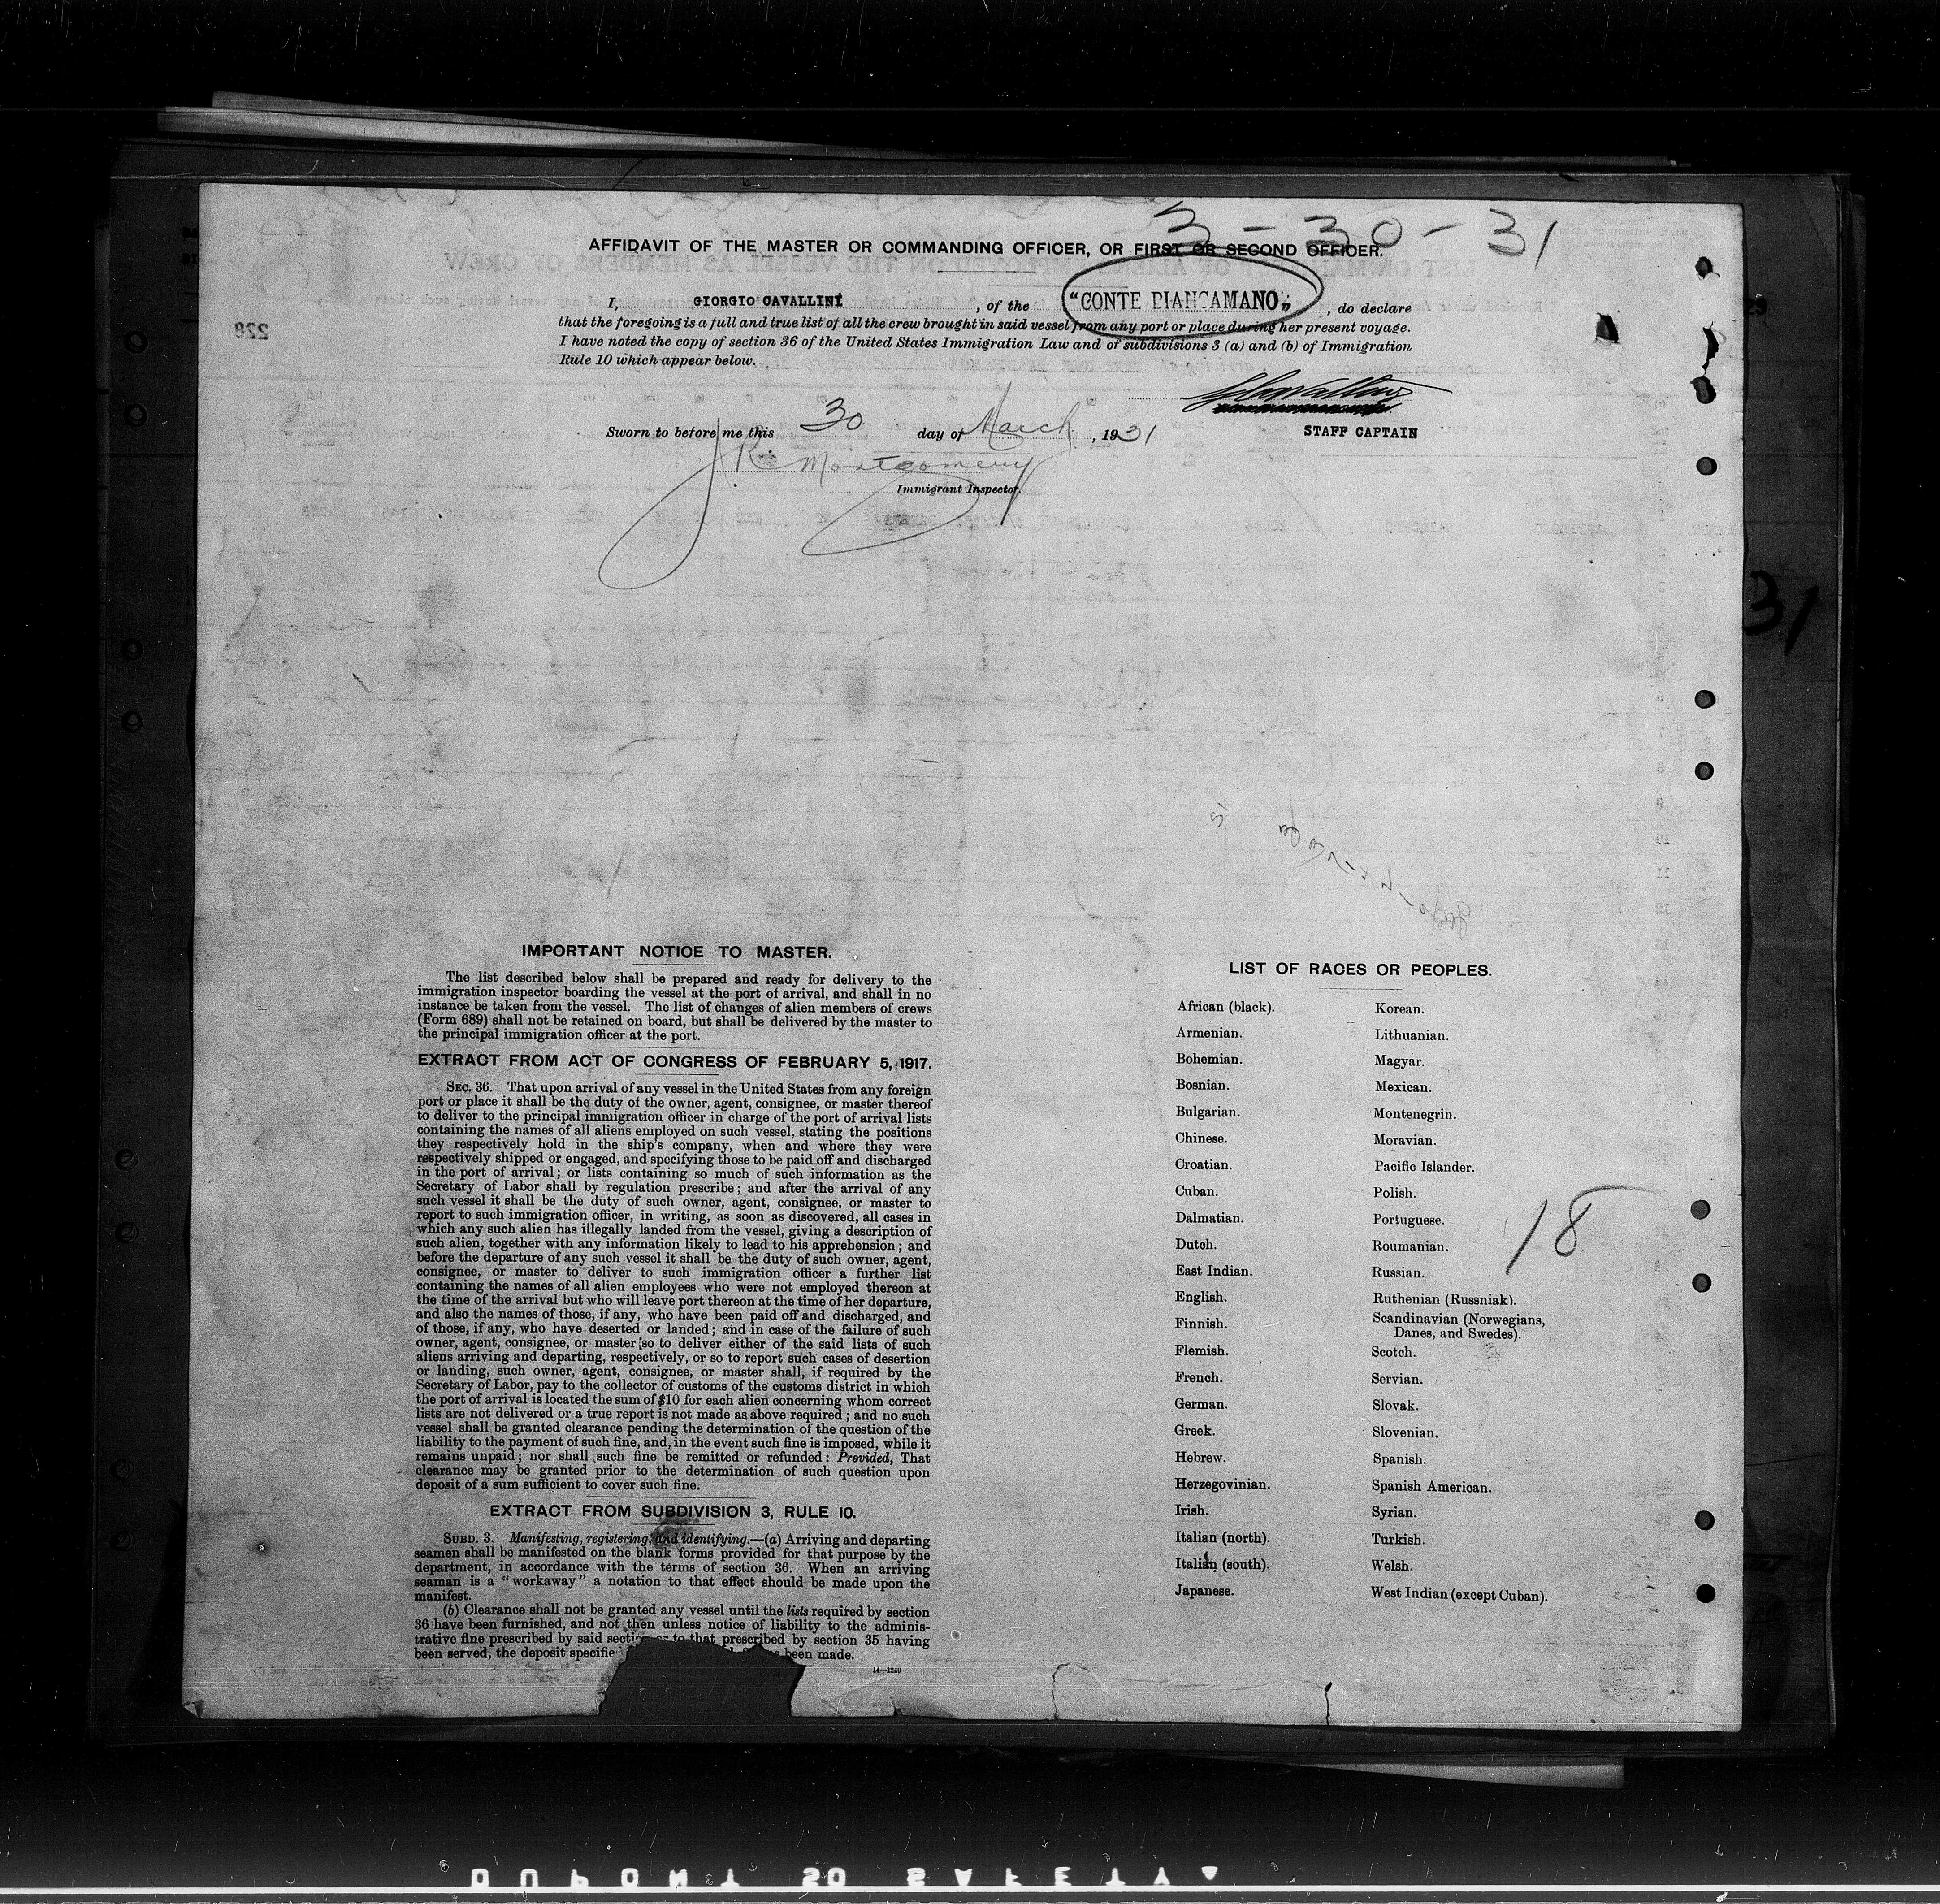 3-30-31
AFFIDAVIT OF THE MASTER OR COMMANDING OFFICER, OR FIRST OR SECOND OFFICER.
I, GIORGIO CAVALLINI, of the "CONTE BIANCAMANO", do declare
that the foregoing is a full and true list of all the crew brought in said vessel from any port or place during her present voyage.
I have noted the copy of section 36 of the United States Immigration Law and of subdivisions 3 (a) and (b) of Immigration
Rule 10 which appear below.
228
GCavallini
Sworn to before me this 30 day of March, 1931
STAFF CAPTAIN
J. R. Montgomery
Immigrant Inspector.
31
IMPORTANT NOTICE TO MASTER.
The list described below shall be prepared and ready for delivery to the
immigration inspector boarding the vessel at the port of arrival, and shall in no
instance be taken from the vessel. The list of changes of alien members of crews
(Form 689) shall not be retained on board, but shall be delivered by the master to
the principal immigration officer at the port.
EXTRACT FROM ACT OF CONGRESS OF FEBRUARY 5, 1917.
SEC. 36. That upon arrival of any vessel in the United States from any foreign
port or place it shall be the duty of the owner, agent, consignee, or master thereof
to deliver to the principal immigration officer in charge of the port of arrival lists
containing the names of all aliens employed on such vessel, stating the positions
they respectively hold in the ship's company, when and where they were
respectively shipped or engaged, and specifying those to be paid off and discharged
in the port of arrival; or lists containing so much of such information as the
Secretary of Labor shall by regulation prescribe; and after the arrival of any
such vessel it shall be the duty of such owner, agent, consignee, or master to
report to such immigration officer, in writing, as soon as discovered, all cases in
which any such alien has illegally landed from the vessel, giving a description of
such alien, together with any information likely to lead to his apprehension; and
before the departure of any such vessel it shall be the duty of such owner, agent,
consignee, or master to deliver to such immigration officer a further list
containing the names of all alien employees who were not employed thereon at
the time of the arrival but who will leave port thereon at the time of her departure,
and also the names of those, if any, who have been paid off and discharged, and
of those, if any, who have deserted or landed; and in case of the failure of such
owner, agent, consignee, or master so to deliver either of the said lists of such
aliens arriving and departing, respectively, or so to report such cases of desertion
or landing, such owner, agent, consignee, or master shall, if required by the
Secretary of Labor, pay to the collector of customs of the customs district in which
the port of arrival is located the sum of $10 for each alien concerning whom correct
lists are not delivered or a true report is not made as above required; and no such
vessel shall be granted clearance pending the determination of the question of the
liability to the payment of such fine, and, in the event such fine is imposed, while it
remains unpaid; nor shall such fine be remitted or refunded: Provided, That
clearance may be granted prior to the determination of such question upon
deposit of a sum sufficient to cover such fine.
EXTRACT FROM SUBDIVISION 3, RULE 10.
SUBD. 3. Manifesting, registering, and identifying.—(a) Arriving and departing
seamen shall be manifested on the blank forms provided for that purpose by the
department, in accordance with the terms of section 36. When an arriving
seaman is a "workaway" a notation to that effect should be made upon the
manifest.
(b) Clearance shall not be granted any vessel until the lists required by section
36 have been furnished, and not then unless notice of liability to the adminis-
trative fine prescribed by said section or to that prescribed by section 35 having
been served, the deposit specifie been made.
14—1240
LIST OF RACES OR PEOPLES.
African (black).
Armenian.
Bohemian.
Bosnian.
Bulgarian.
Chinese.
Croatian.
Cuban.
Dalmatian.
Dutch.
East Indian.
English.
Finnish.
Flemish.
French.
German.
Greek.
Hebrew.
Herzegovinian.
Irish.
Italian (north).
Italian (south).
Japanese.
Korean.
Lithuanian.
Magyar.
Mexican.
Montenegrin.
Moravian.
Pacific Islander.
Polish.
Portuguese.
Roumanian.
Russian.
Ruthenian (Russniak).
Scandinavian (Norwegians,
Danes, and Swedes).
Scotch.
Servian.
Slovak.
Slovenian.
Spanish.
Spanish American.
Syrian.
Turkish.
Welsh.
West Indian (except Cuban).
18